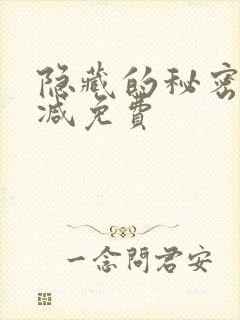 隐藏的秘密
减免费
一念問君安